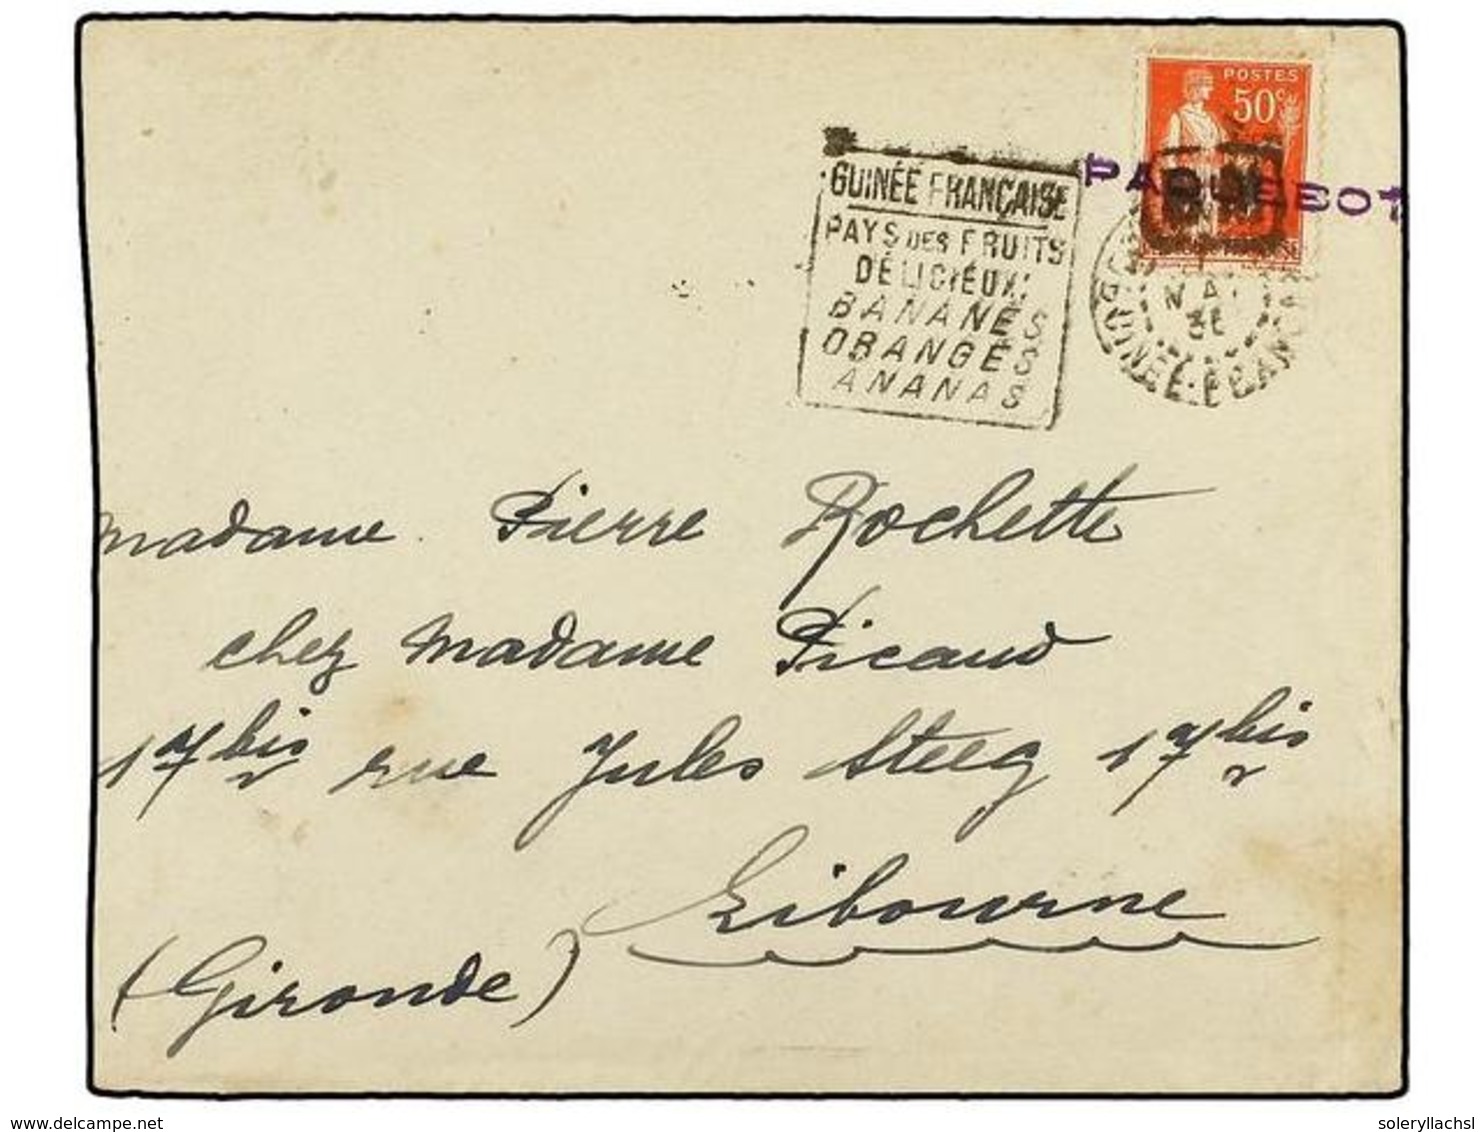 POSTES
50c
PAQUEBOT
GUINÉE FRANÇAISE
PAYS DES FRUITS
DÉLICIEUX
BANANES
ORANGES
ANANAS
GUINÉE FRANÇ
Madame Pierre Rochette
chez Madame Picaud
17 bis rue Jules Steeg 17 bis
Libourne
(Gironde)
delcampe.net
soleryllachsl